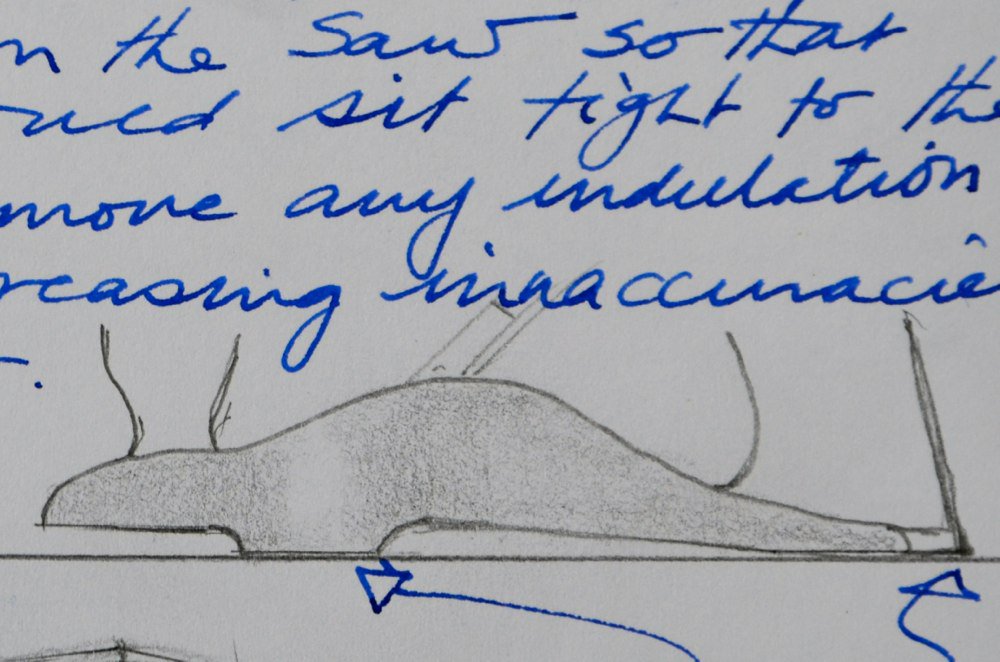 n the saw so that
sit tight to the
move any undulation
reasing inaccuracie